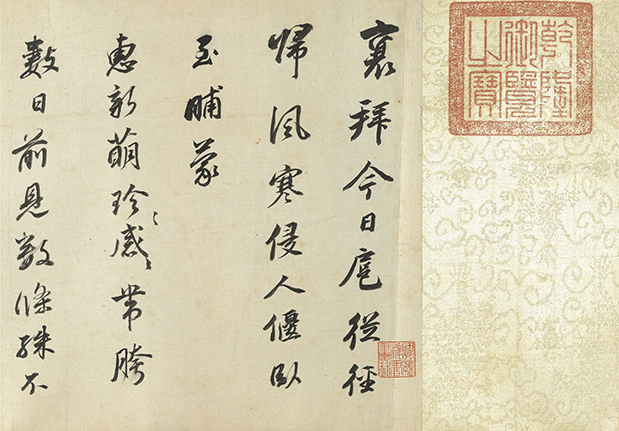 乾隆
御覽
之寶
襄拜今日扈從徑
歸風寒侵人偃臥
至晡蒙
惠新萌珍〻感〻帶胯
數日前見數條殊不